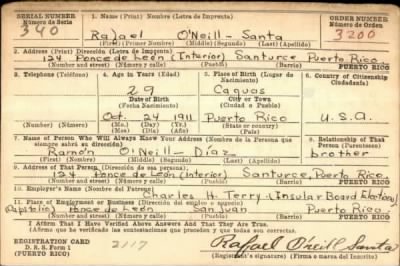 SERIAL NUMBER 1. Name (Print) Nombre (Letra de Imprenta) ORDER NUMBER
Número de Serie Número de Orden
340 Rafael O'Neill - Santa 3200
(First) (Primer Nombre) (Middle) (Segundo) (Last) (Apellido)
2. Address (Print) Dirección (Letra de Imprenta)
124 Ponce de León (Interior) Santurce Puerto Rico
(Number and street) (Número y calle) (Town) (Pueblo) (Barrio) PUERTO RICO
3. Telephone (Teléfono) 4. Age in Years (Edad) 5. Place of Birth (Lugar de Nacimiento) 6. Country of Citizenship
Ciudadanía
29 Caguas
Date of Birth City or Town
Fecha de Nacimiento (Ciudad o Pueblo)
Oct. 24 1911 Puerto Rico U.S.A.
(Mo.) (Day) (Yr.) State or country
(Mes) (Día) (Año) (Estado o país)
7. Name of Person Who Will Always Know Your Address (Nombre de la Persona que siempre sabrá su dirección) 8. Relationship of That Person (Parentesco)
Ramón O'Neill - Díaz brother
(First) (Nombre) (Middle) (Segundo) (Last) (Apellido)
9. Address of That Person (Dirección de esa persona)
124 Ponce de León (interior) Santurce, Puerto Rico
(Number and street) (Número y calle) (Town) (Pueblo) (Barrio) PUERTO RICO
10. Employer's Name (Nombre del Patrono)
Charles H. Terry (Insular Board Elections)
11. Place of Employment or Business (Dirección del empleo o negocio)
Ponce de León San Juan Puerto Rico
(Number and street) (Número y calle) (Town) (Pueblo) (Barrio) PUERTO RICO
I Affirm That I Have Verified Above Answers And That They Are True.
(Afirmo que he verificado las contestaciones que anteceden y que son ciertas)
REGISTRATION CARD
D. S. S. Form 1
PUERTO RICO
2117
Rafael O'Neill Santa
Registrant's signature (Firma o marca del Inscrito)